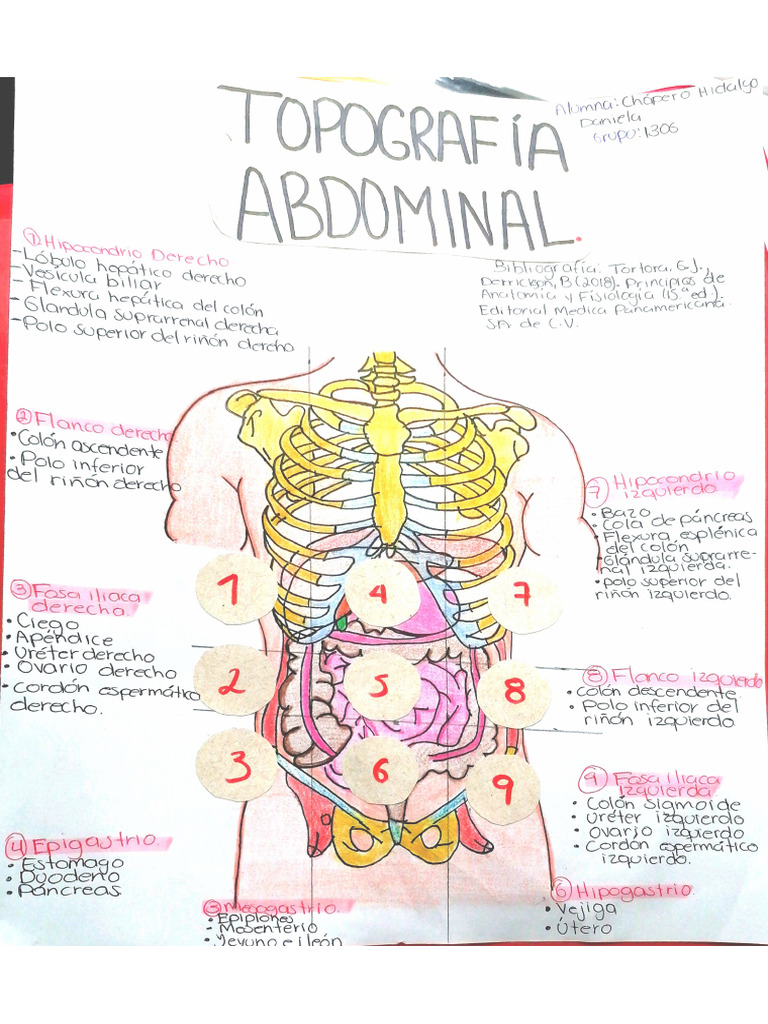 TOPOGRAFÍA
ABDOMINAL.
Alumna: Chápero Hidalgo
Daniela
Grupo: 1306
Bibliografía: Tortora. G.J.,
Derrickson, B (2018). Principios de
Anatomia y Fisiología (15.ª ed.).
Editorial Medica Panamericana.
SA de C.V.
① Hipocondrio Derecho
- Lóbulo hepático derecho
- Vesícula biliar
- Flexura hepática del colón
- Glandula suprarrenal derecha
- Polo superior del riñón dercho
② Flanco derecho
• Colón ascendente
• Polo inferior
del riñón derecho
③ Fosa iliaca
derecha.
• Ciego
• Apéndice
• Uréter derecho
• Ovario derecho
• Cordón espermático
derecho.
④ Epigastrio.
• Estomago
• Duodeno
• Páncreas
⑤ Mesogastrio.
• Epiplones
• Mesenterio
• Yeyuno e ileón
⑥ Hipogastrio.
• Vejiga
• Útero
⑦ Hipocondrio
izquierdo
• Bazo
• Cola de páncreas
• Flexura esplénica
del colón
• Glándula suprarre-
nal izquierda.
• Polo superior del
riñón izquierdo.
⑧ Flanco izquierdo
• Colón descendente
• Polo inferior del
riñón izquierdo
⑨ Fosa iliaca
izquierda
• Colón sigmoide
• Uréter izquierdo
• Ovario izquierdo
• Cordón espermático
izquierdo.
1 4 7
2 5 8
3 6 9